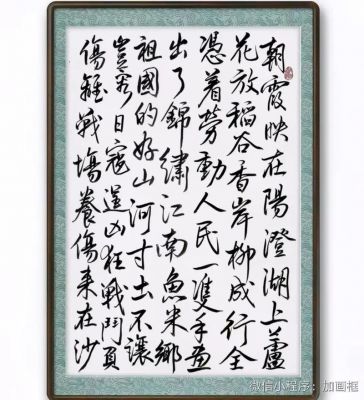 朝霞映在陽澄湖上蘆
花放稻谷香岸柳成行全
憑着勞動人民一隻手畫
出了錦繡江南魚米鄉
祖國的好山河寸土不讓
豈容日寇逞凶狂戰鬥負
傷離戰塲養傷来在沙
微信小程序：加画框